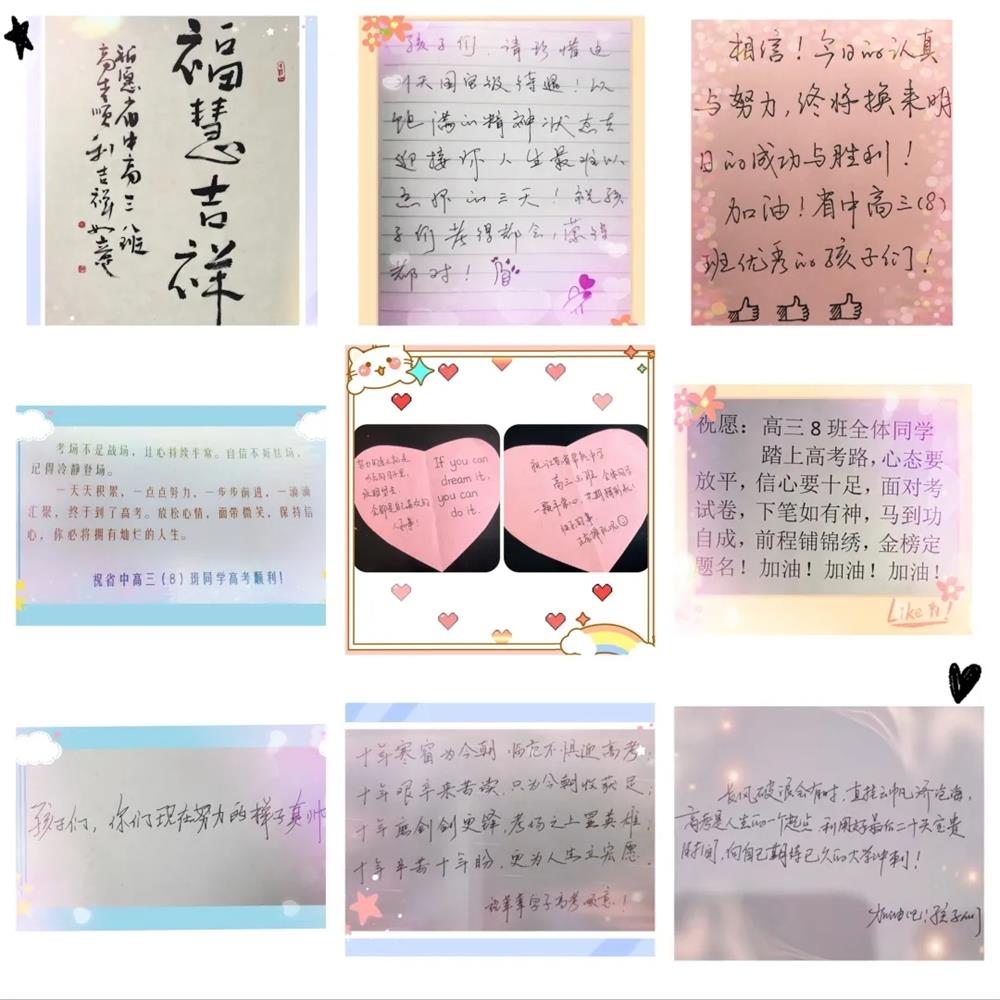 福慧吉祥
祝愿省中高三八班
高考顺利吉祥如意
孩子们，请珍惜这
21天国宝级待遇！以
饱满的精神状态去
迎接你人生最难以
忘怀的三天！祝孩
子们考得都会，蒙得
都对！
相信！今日的认真
与努力，终将换来明
日的成功与胜利！
加油！省中高三(8)
班优秀的孩子们！
考场不是战场，让心持续平常。自信不妨怯场，
记得冷静登场。
一天天积累，一点点努力，一步步前进，一滴滴
汇聚，终于到了高考。放松心情，面带微笑，保持信
心，你必将拥有灿烂的人生。
祝省中高三（8）班同学高考顺利！
If you can
dream it,
you can
do it.
祝愿：高三8班全体同学
踏上高考路，心态要
放平，信心要十足，面对考
试卷，下笔如有神，马到功
自成，前程铺锦绣，金榜定
题名！加油！加油！加油！
Like it!
孩子们，你们现在努力的样子真帅
十年寒窗为今朝，临危不惧迎高考；
十年艰辛来苦读，只为今朝收获足；
十年磨剑剑更锋，考场之上置英雄；
十年辛苦十年盼，更为人生立宏愿。
祝莘莘学子高考顺意！
长风破浪会有时，直挂云帆济沧海，
高考是人生的一个起点，利用好最后二十天宝贵
时间，向自己期待已久的大学冲刺！
加油吧！孩子们